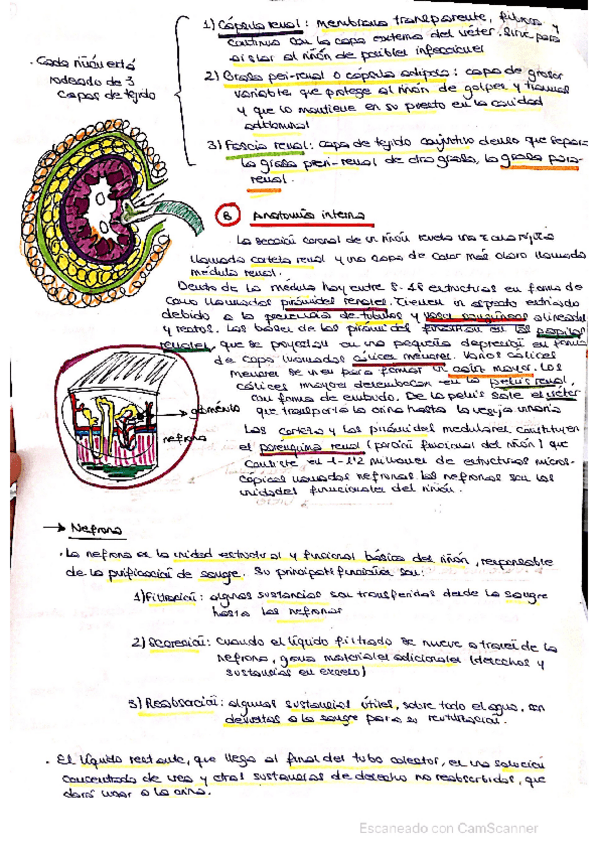 · Cada riñón está
rodeado de 3
capas de tejido
1) Cápsula renal: membrana transparente, fibrosa y
continua con la capa externa del uréter. Sirve para
aislar al riñón de posibles infecciones
2) Grasa peri-renal o cápsula adiposa: capa de grosor
variable que protege al riñón de golpes y traumas
y que lo mantiene en su puesto en la cavidad
abdominal
3) Fascia renal: capa de tejido conjuntivo denso que separa
la grasa peri-renal de otra grasa, la grasa para-
renal.
B Anatomía interna
La sección coronal de un riñón revela una zona rojiza
llamada corteza renal y una capa de color más claro llamada
médula renal.
Dentro de la médula hay entre 8-18 estructuras en forma de
cono llamadas pirámides renales. Tienen un aspecto estriado
debido a la presencia de túbulos y vasos sanguíneos alineados
y rectos. Las bases de las pirámides en las papilas
renales, que se proyectan en una pequeña depresión en forma
de copa llamados cálices menores. Varios cálices
menores se unen para formar un cáliz mayor. Los
cálices mayores desembocan en la pelvis renal,
con forma de embudo. De la pelvis sale el uréter
que transporta la orina hasta la vejiga urinaria
glomérulo
nefrona
La corteza y las pirámides medulares constituyen
el parénquima renal (porción funcional del riñón) que
contiene en 1-1'2 millones de estructuras micros-
cópicas llamadas nefronas. Las nefronas son las
unidades funcionales del riñón.
→ Nefrona
· La nefrona es la unidad estructural y funcional básica del riñón, responsable
de la purificación de sangre. Su principales funciones son:
1) Filtración: algunas sustancias son transferidas desde la sangre
hasta las nefronas
2) Secreción: Cuando el líquido filtrado se mueve a través de la
nefrona, gana materiales adicionales (desechos y
sustancias en exceso)
3) Reabsorción: algunas sustancias útiles, sobre todo el agua, son
devueltas a la sangre para su reutilización.
· El líquido restante, que llega al final del tubo colector, es una solución
concentrada de urea y otras sustancias de desecho no reabsorbidas, que
dará lugar a la orina.
Escaneado con CamScanner